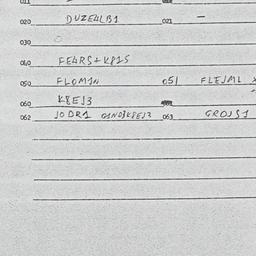 020 DUZE4LB1 021 –
030
040 FE4RS+K815
050 FLOM1N 051 FLEJML
060 K8EJ3
062 JODR1 01ND3K8EJ3 063 GROJS1